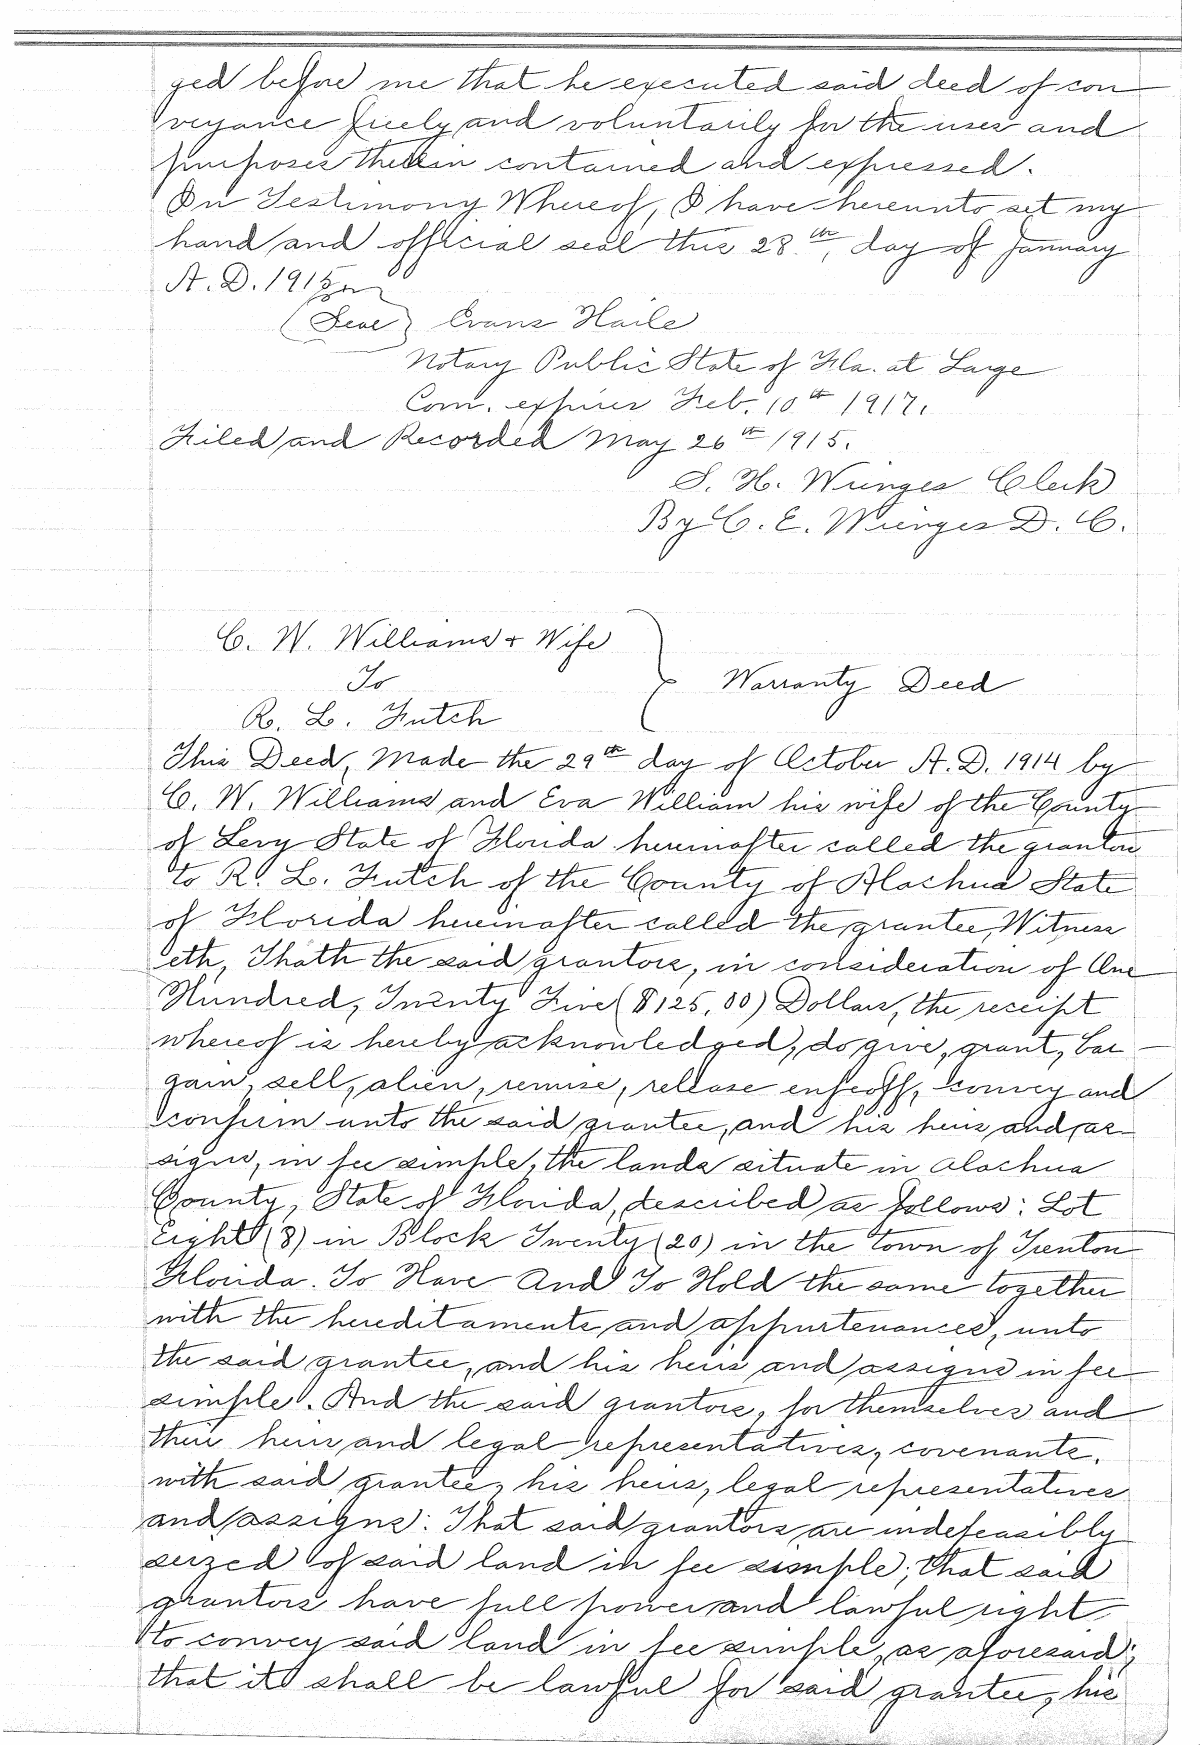 ged before me that he executed said deed of con
veyance freely and voluntarily for the uses and
purposes therein contained and expressed.
In Testimony Whereof, I have hereunto set my
hand and official seal this 28th, day of January
A. D. 1915
(Seal) Evans Haile
Notary Public State of Fla. at Large
Com. expires Feb. 10th 1917.
Filed and Recorded May 26th 1915.
S. H. Wienges Clerk
By C. E. Wienges D. C.
C. W. Williams + Wife
To
Warranty Deed
R. L. Futch
This Deed, Made the 29th day of October A. D. 1914 by
C. W. Williams and Eva William his wife of the County
of Levy State of Florida hereinafter called the grantors
to R. L. Futch of the County of Alachua State
of Florida hereinafter called the grantee, Witness
eth, Thath the said grantors, in consideration of One
Hundred, Twenty Five ($125,00) Dollars, the receipt
whereof is hereby acknowledged, do give, grant, bar
gain, sell, alien, remise, release enfeoff, convey and
confirm unto the said grantee, and his heirs and as
signs, in fee simple, the lands situate in Alachua
County, State of Florida, described as follows: Lot
Eight (8) in Block Twenty (20) in the town of Trenton
Florida. To Have And To Hold the same together
with the hereditaments and appurtenances, unto
the said grantee, and his heirs and assigns in fee
simple. And the said grantors, for themselves and
their heirs and legal representatives, covenants.
with said grantee, his heirs, legal representatives
and assigns: That said grantors are indefeasibly
seized of said land in fee simple; that said
grantors have full power and lawful right
to convey said land in fee simple, as aforesaid;
that it shall be lawful for said grantee, his